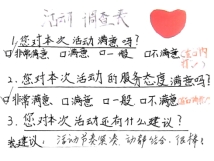 活动 调查表
1.您对本次活动满意吗?
☑非常满意 □满意 □一般 □不满意
2.您对本次活动的服务态度满意吗?
☑非常满意 □满意 □一般 □不满意
3.您对本次活动还有什么建议?
建议: 活动节奏紧凑,动静结合,很棒!